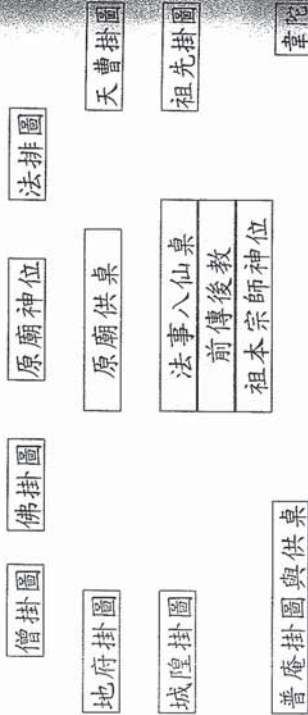 僧掛圖
佛掛圖
原廟神位
法排圖
地府掛圖
原廟供桌
天曹掛圖
城隍掛圖
法事八仙桌
前傳後教
祖本宗師神位
祖先掛圖
普庵掛圖與供桌
韋陀